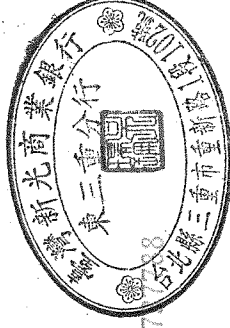 臺灣新光商業銀行
東三重分行
台北縣三重市重新路1段102號